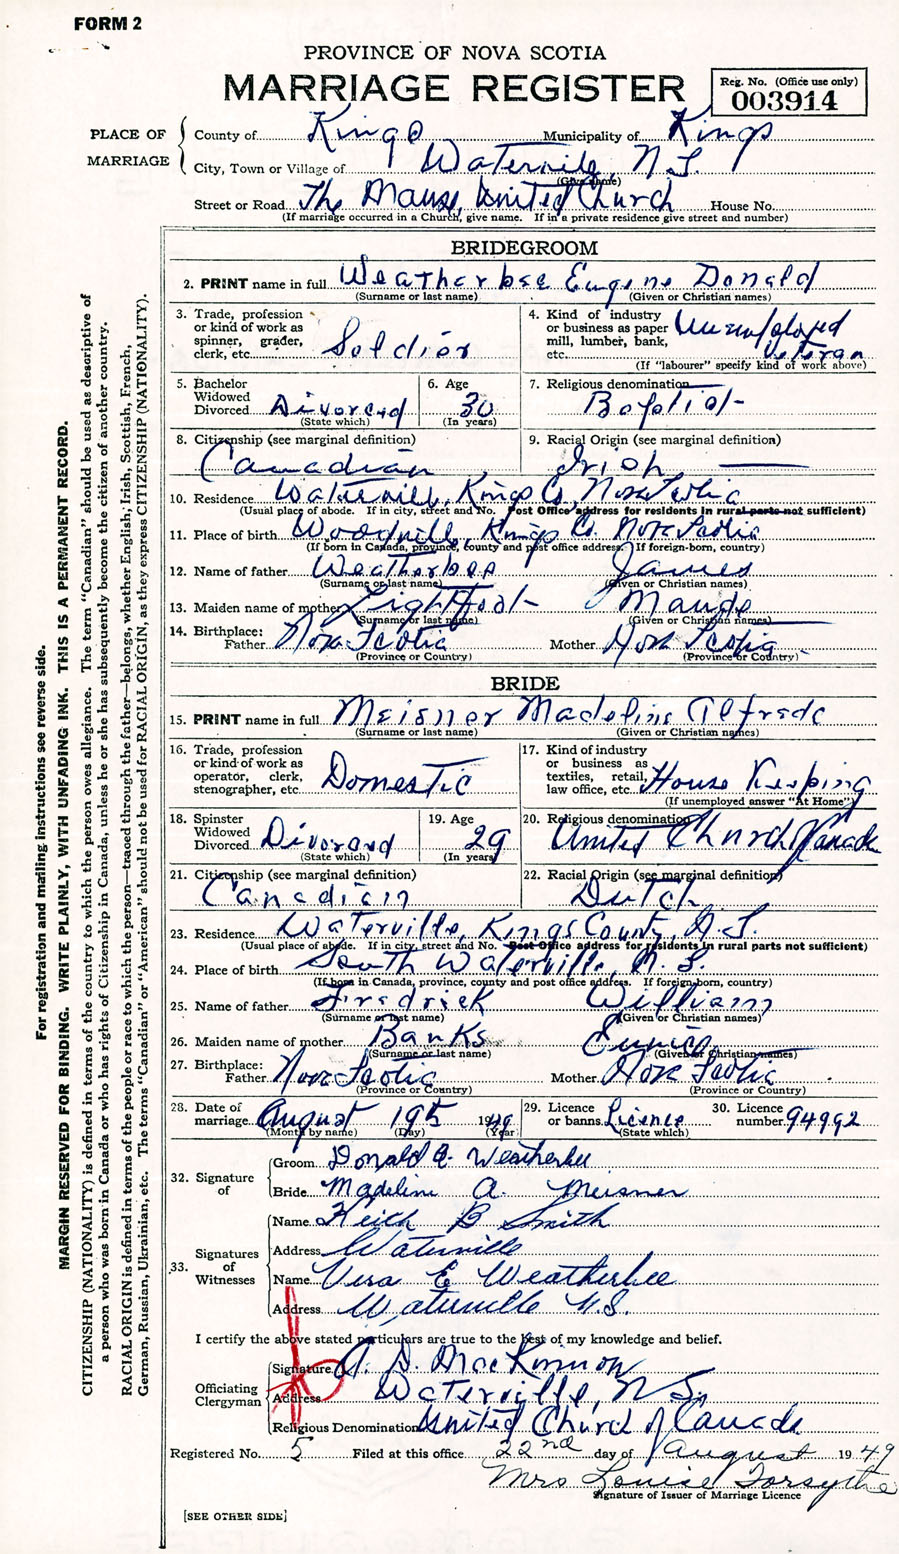 FORM 2
PROVINCE OF NOVA SCOTIA
MARRIAGE REGISTER
Reg. No. (Office use only)
003914
PLACE OF MARRIAGE
County of Kings Municipality of Kings
City, Town or Village of Waterville, N.S.
(Give name)
Street or Road The Manse United Church House No.
(If marriage occurred in a Church, give name. If in a private residence give street and number)
BRIDEGROOM
2. PRINT name in full Weatherbee Eugene Donald
(Surname or last name) (Given or Christian names)
3. Trade, profession or kind of work as spinner, grader, clerk, etc. Soldier
4. Kind of industry or business as paper mill, lumber, bank, etc. Unemployed Veteran
(If "labourer" specify kind of work above)
5. Bachelor Widowed Divorced Divorced
(State which)
6. Age 30
(In years)
7. Religious denomination Baptist
8. Citizenship (see marginal definition) Canadian
9. Racial Origin (see marginal definition) Irish
10. Residence Waterville, Kings Co. Nova Scotia
(Usual place of abode. If in city, street and No. Post Office address for residents in rural parts not sufficient)
11. Place of birth Woodville, Kings Co. Nova Scotia
(If born in Canada, province, county and post office address. If foreign-born, country)
12. Name of father Weatherbee James
(Surname or last name) (Given or Christian names)
13. Maiden name of mother Lightfoot Maude
(Surname or last name) (Given or Christian names)
14. Birthplace: Father Nova Scotia Mother Nova Scotia
(Province or Country) (Province or Country)
BRIDE
15. PRINT name in full Meisner Madeline Alfreda
(Surname or last name) (Given or Christian names)
16. Trade, profession or kind of work as operator, clerk, stenographer, etc. Domestic
17. Kind of industry or business as textiles, retail, law office, etc. House Keeping
(If unemployed answer "At Home")
18. Spinster Widowed Divorced Divorced
(State which)
19. Age 29
(In years)
20. Religious denomination United Church Canada
21. Citizenship (see marginal definition) Canadian
22. Racial Origin (see marginal definition) Dutch
23. Residence Waterville, Kings County, N.S.
(Usual place of abode. If in city, street and No. Post Office address for residents in rural parts not sufficient)
24. Place of birth South Waterville, N.S.
(If born in Canada, province, county and post office address. If foreign-born, country)
25. Name of father Fredrick William
(Surname or last name) (Given or Christian names)
26. Maiden name of mother Banks Eunice
(Surname or last name) (Given or Christian names)
27. Birthplace: Father Nova Scotia Mother Nova Scotia
(Province or Country) (Province or Country)
28. Date of marriage August 19th 1949
(Month by name) (Day) (Year)
29. Licence or banns Licence
(State which)
30. Licence number 94992
32. Signature of
Groom Donald E. Weatherbee
Bride Madeline A. Meisner
33. Signatures of Witnesses
Name Keith B Smith
Address Waterville
Name Vera E Weatherbee
Address Waterville N.S.
I certify the above stated particulars are true to the best of my knowledge and belief.
Officiating Clergyman
Signature A. D. MacKinnon
Address Waterville, N.S.
Religious Denomination United Church of Canada
Registered No. 5 Filed at this office 22nd day of August 1949
Mrs Louise Forsythe
Signature of Issuer of Marriage Licence
[SEE OTHER SIDE]
For registration and mailing instructions see reverse side.
MARGIN RESERVED FOR BINDING. WRITE PLAINLY, WITH UNFADING INK. THIS IS A PERMANENT RECORD.
CITIZENSHIP (NATIONALITY) is defined in terms of the country to which the person owes allegiance. The term "Canadian" should be used as descriptive of
a person who was born in Canada or who has rights of Citizenship in Canada, unless he or she has subsequently become the citizen of another country.
RACIAL ORIGIN is defined in terms of the people or race to which the person—traced through the father—belongs, whether English, Irish, Scottish, French,
German, Russian, Ukrainian, etc. The terms "Canadian" or "American" should not be used for RACIAL ORIGIN, as they express CITIZENSHIP (NATIONALITY).